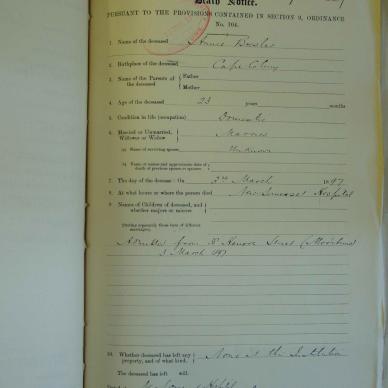 Death Notice.
PURSUANT TO THE PROVISIONS CONTAINED IN SECTION 9, ORDINANCE
No. 104.
1. Name of the deceased
2. Birthplace of the deceased Cape Colony
3. Names of the Parents of the deceased { Father
Mother
4. Age of the deceased 23 years months
5. Condition in life (occupation) Domestic
6. Married or Unmarried, Widower or Widow } Married
(a) Name of surviving spouse Unknown
(b) Name or names and approximate date of death of previous spouse or spouses
7. The day of the decease: On 3rd March 1897
8. At what house or where the person died New Somerset Hospital
9. Names of Children of deceased, and whether majors or minors
(Stating separately those born of different marriages)
Admitted from Hanover Street
3 March 1897
10. Whether deceased has left any property, and of what kind. } None at the Institution
The deceased has left will.